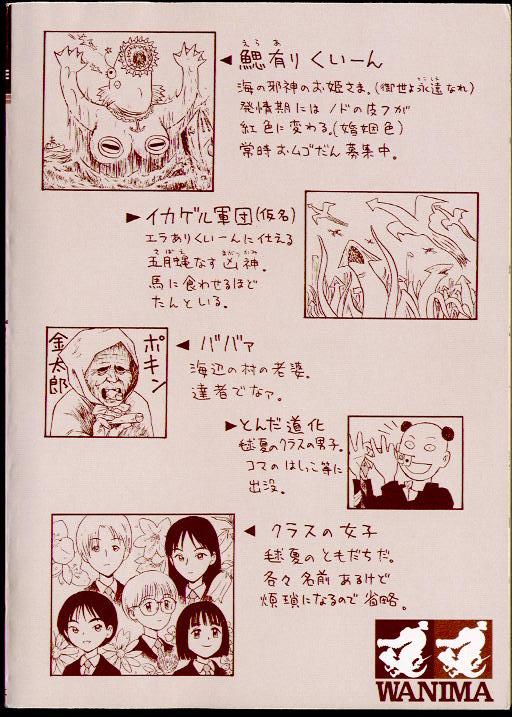 えらあ
鰓有りくいーん
海の邪神のお姫さま。(御世よ永遠なれ)
発情期にはノドの皮フが
紅色に変わる。(婚姻色)
常時おムゴだん募集中。
イカゲル軍団(仮名)
エラありくいーんに仕える
五月蝿なす凶神。
馬に食わせるほど
たんといる。
ポキン
金太郎
ババァ
海辺の村の老婆。
達者でなァ。
とんだ道化
毬夏のクラスの男子。
コマのはしっこ等に
出没。
クラスの女子
毬夏のともだちだ。
各々名前あるけど
煩瑣になるので省略。
WANIMA